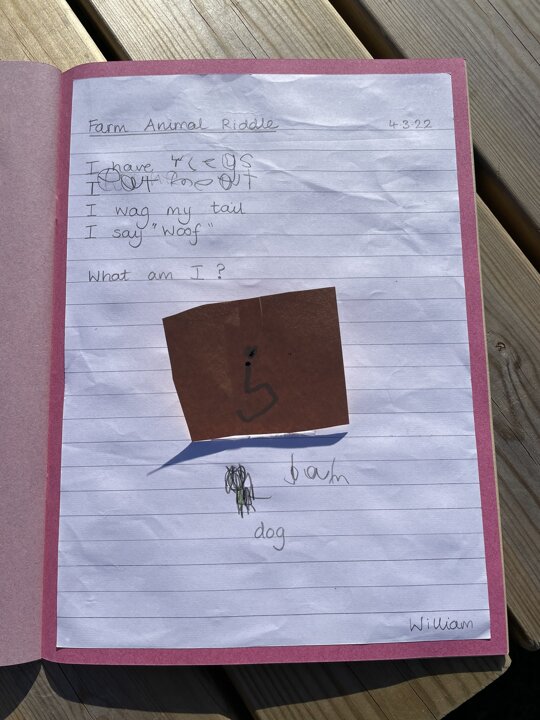 Farm Animal Riddle 4-3-22
I have 4 legs
I
I wag my tail
I say "Woof"
What am I ?
dog
William